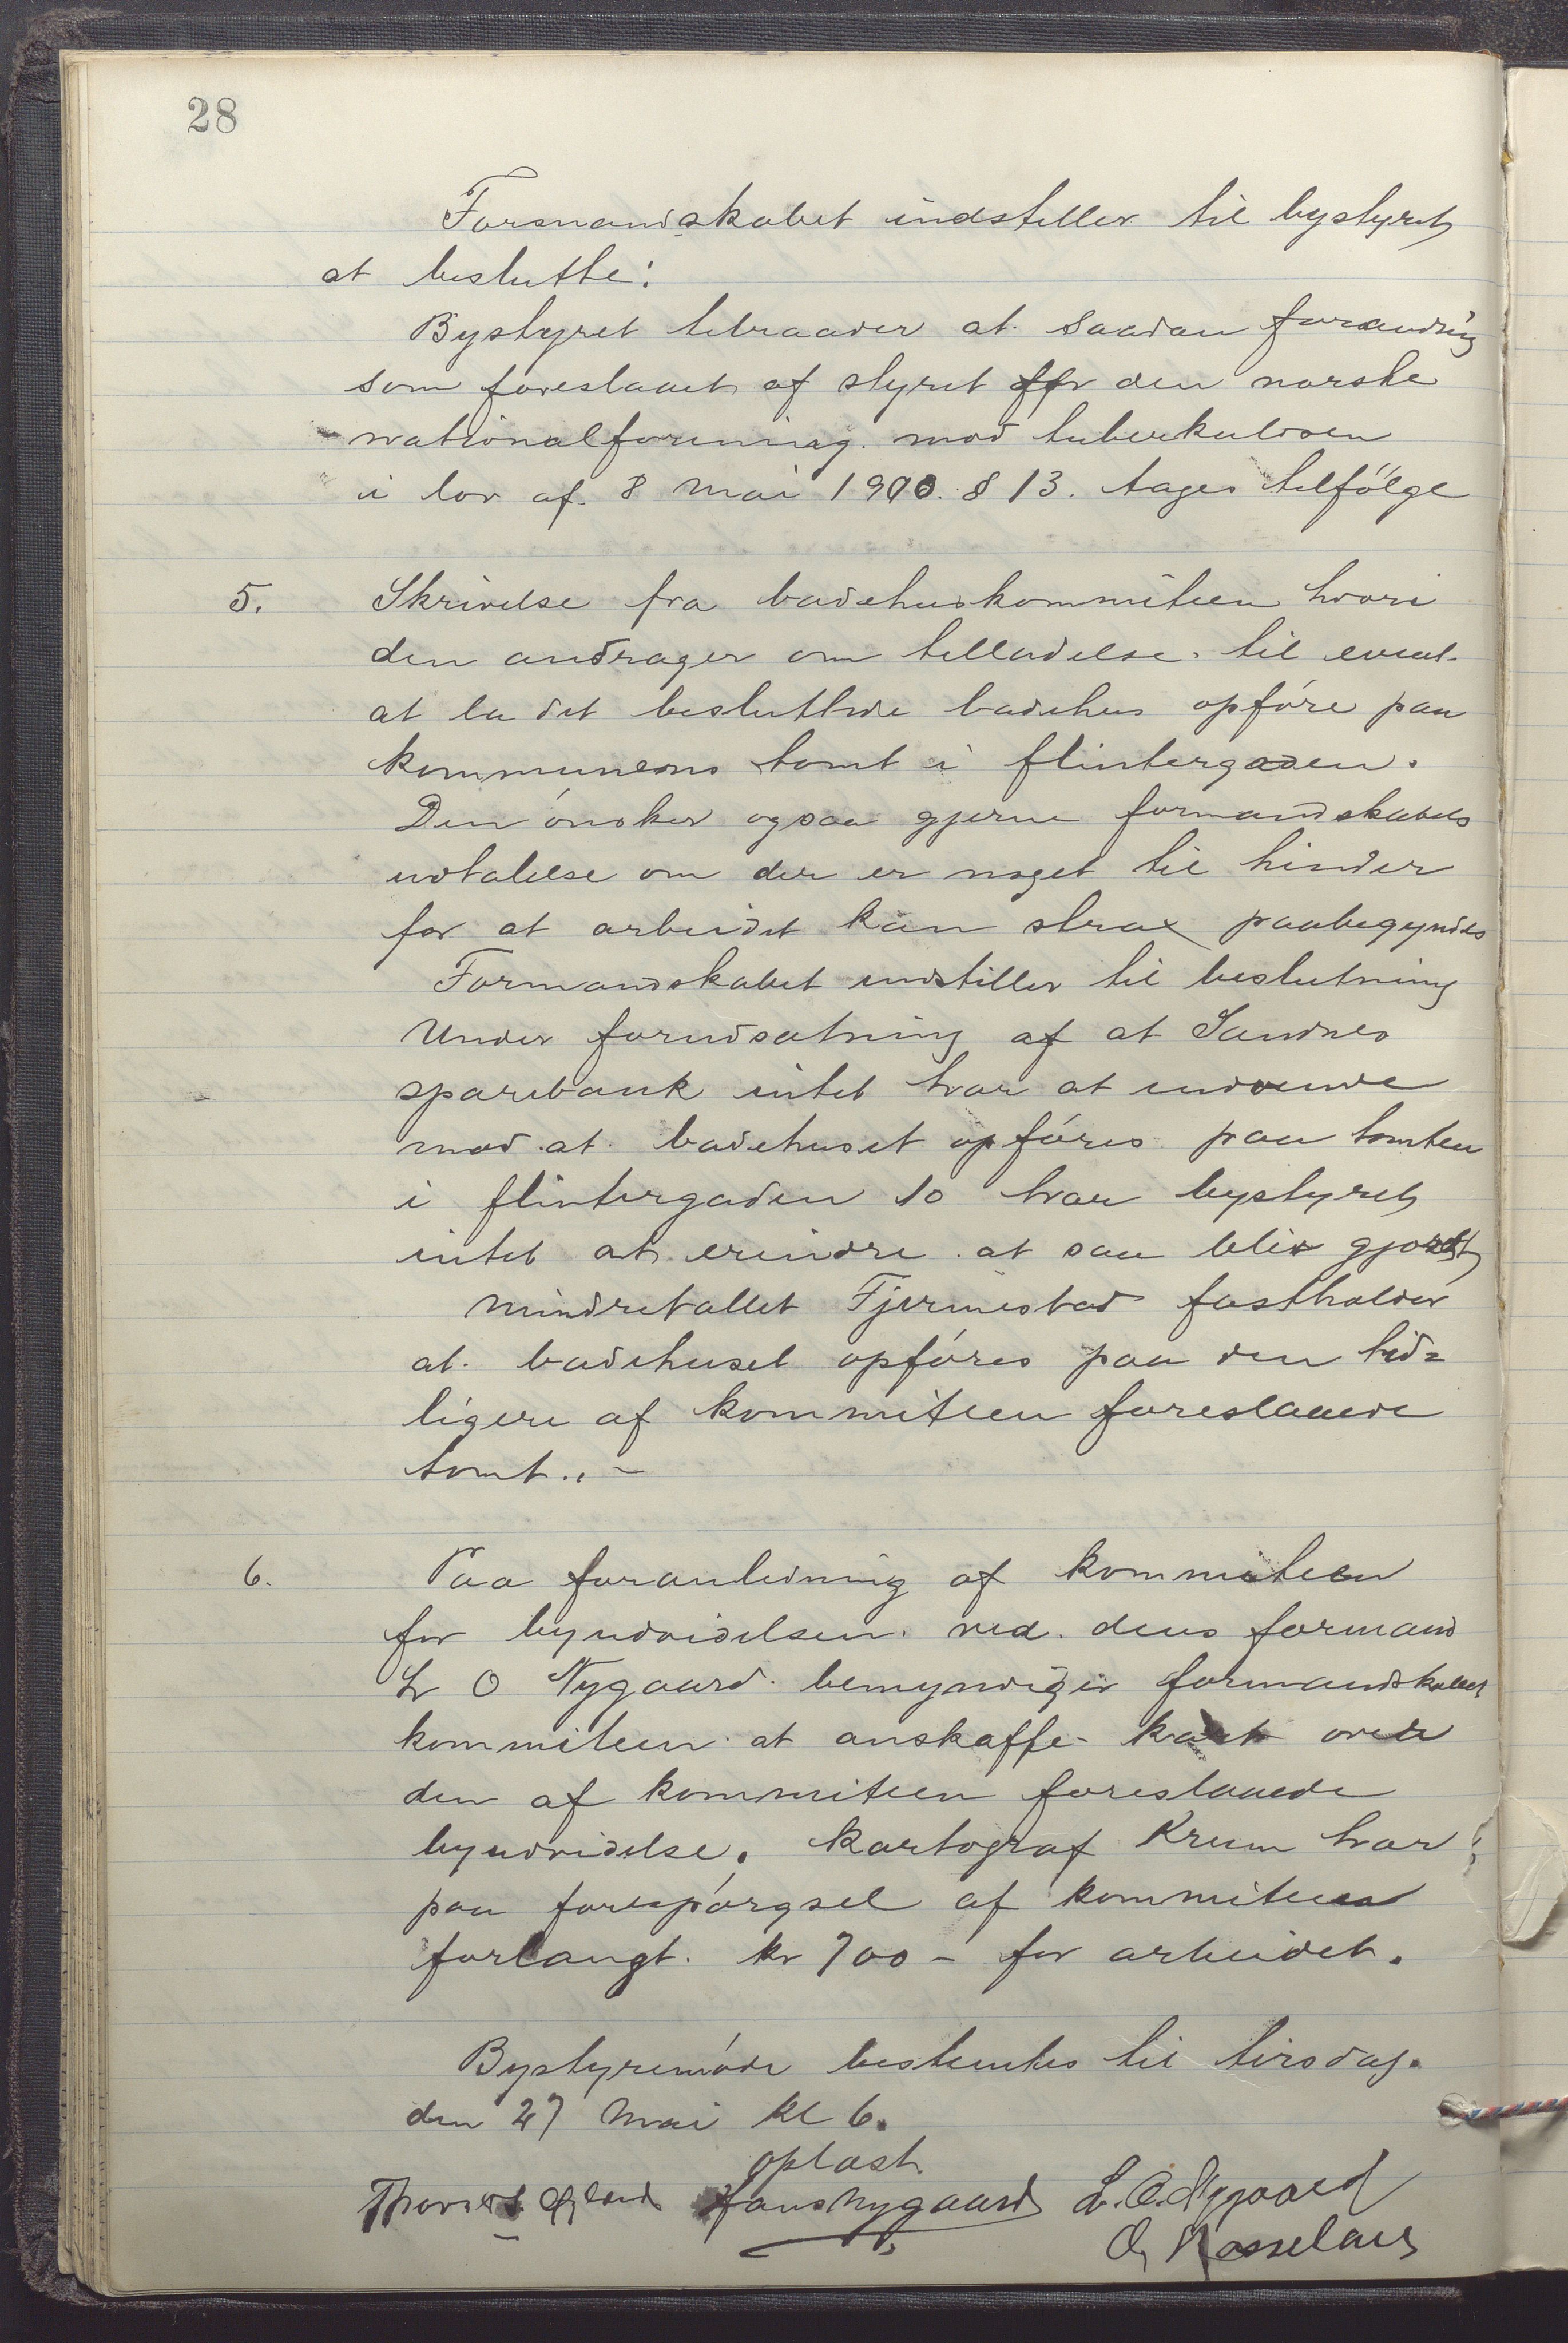 28
Formandskabet indstiller til bystyret
at beslutte:
Bystyret tilraader at saadan forandring
som foreslaaet af styret for den norske
nationalforening mod tuberkulosen
i lov af 8 mai 1900 § 13. tages tilfölge
5. Skrivelse fra badehuskommiteen hvori
den andrager om tilladelse til event.
at la det besluttede badehus opföre paa
kommunens tomt i flintergaden.
Den önsker ogsaa gjerne formandskabets
udtalelse om der er noget til hinder
for at arbeidet kan strax paabegyndes
Formandskabet indstiller til beslutning
Under forudsætning af at Sandnes
sparebank intet har at indvende
mod at badehuset opföres paa tomten
i flintergaden 10 har bystyret
intet at erindre at saa blir gjordt
Mindretallet Fjermestad fastholder
at badehuset opföres paa den tid=
ligere af kommiteen foreslaaede
tomt. -
6. Paa foranledning af kommiteen
for byudvidelsen ved dens formand
L O Nygaard bemyndiger formandskabet
kommiteen at anskaffe kart over
den af kommiteen foreslaaede
byudvidelse. Kartograf Krum har
paa forespörgsel af kommiteen
forlangt kr 700 - for arbeidet.
Bystyremöde bestemtes til tirsdag
den 27 Mai Kl 6.
oplæst
Hans Nygaard L. O. Nygaard